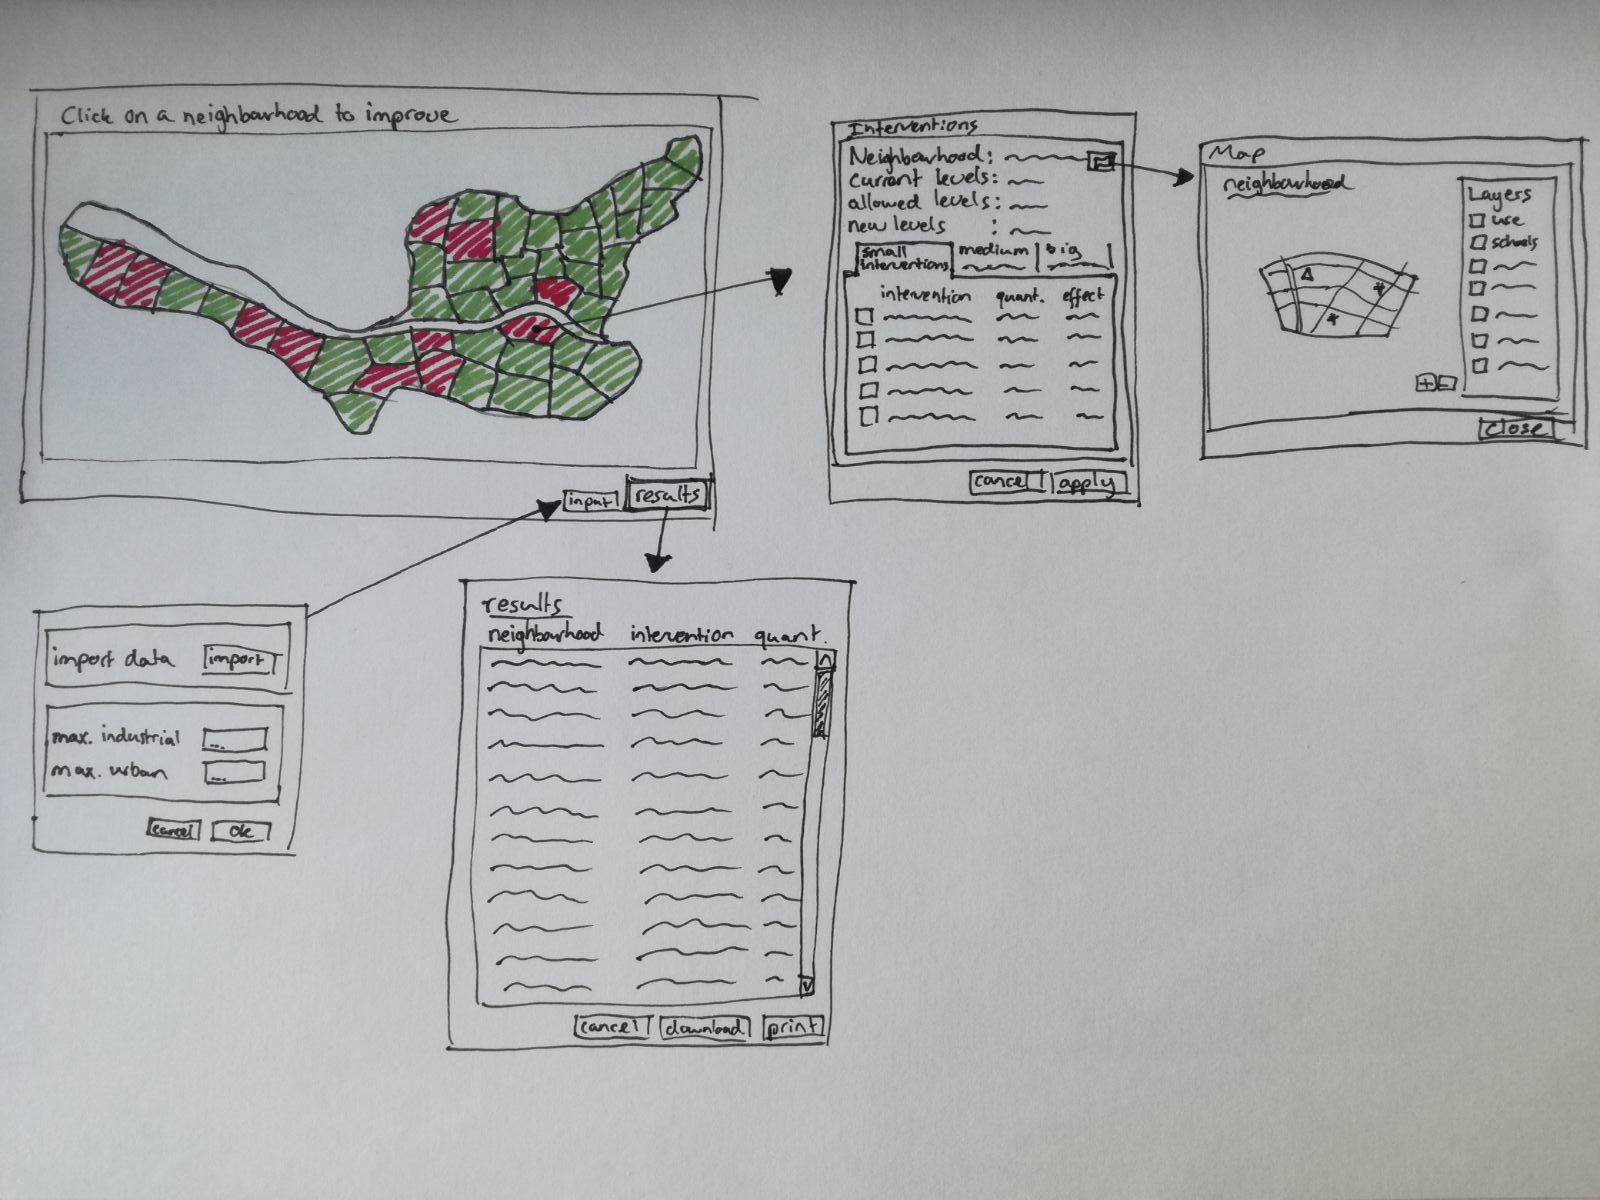 Click on a neighbourhood to improve
input
results
Interventions
Neighbourhood:
current levels:
allowed levels:
new levels :
small interventions
medium
big
intervention quant. effect
cancel
apply
Map
neighbourhood
Layers
use
schools
+
-
close
import data
import
max. industrial ...
max. urban ...
cancel
ok
results
neighbourhood intervention quant.
cancel
download
print